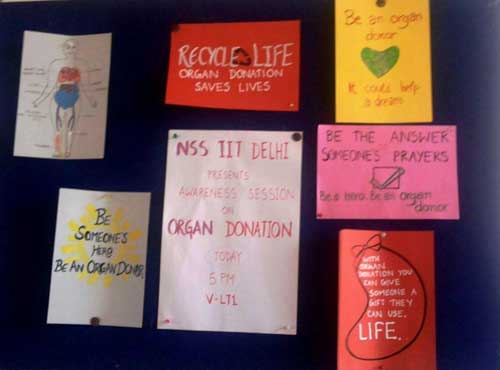 RECYCLE LIFE
ORGAN DONATION
SAVES LIVES
Be an organ
donor
It could help
a dream
NSS IIT DELHI
PRESENTS
AWARENESS SESSION
ON
ORGAN DONATION
TODAY
5 PM
V-LT1
BE THE ANSWER
SOMEONE'S PRAYERS
Be a hero. Be an organ
donor
BE
SOMEONE'S
HERO
BE AN ORGAN DONOR.
WITH
ORGAN
DONATION YOU
CAN GIVE
SOMEONE A
GIFT THEY
CAN USE.
LIFE.